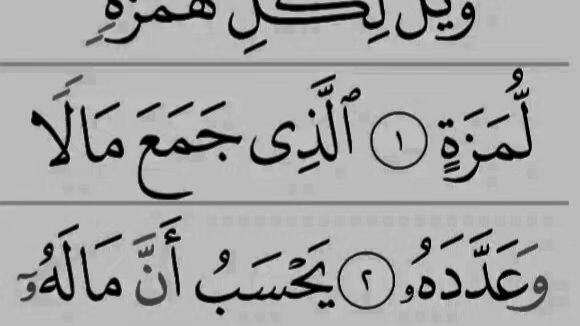 وَيْلٌ لِّكُلِّ هُمَزَةٍ
لُّمَزَةٍ ١ ٱلَّذِى جَمَعَ مَالًا
وَعَدَّدَهُۥ ٢ يَحْسَبُ أَنَّ مَالَهُۥٓ